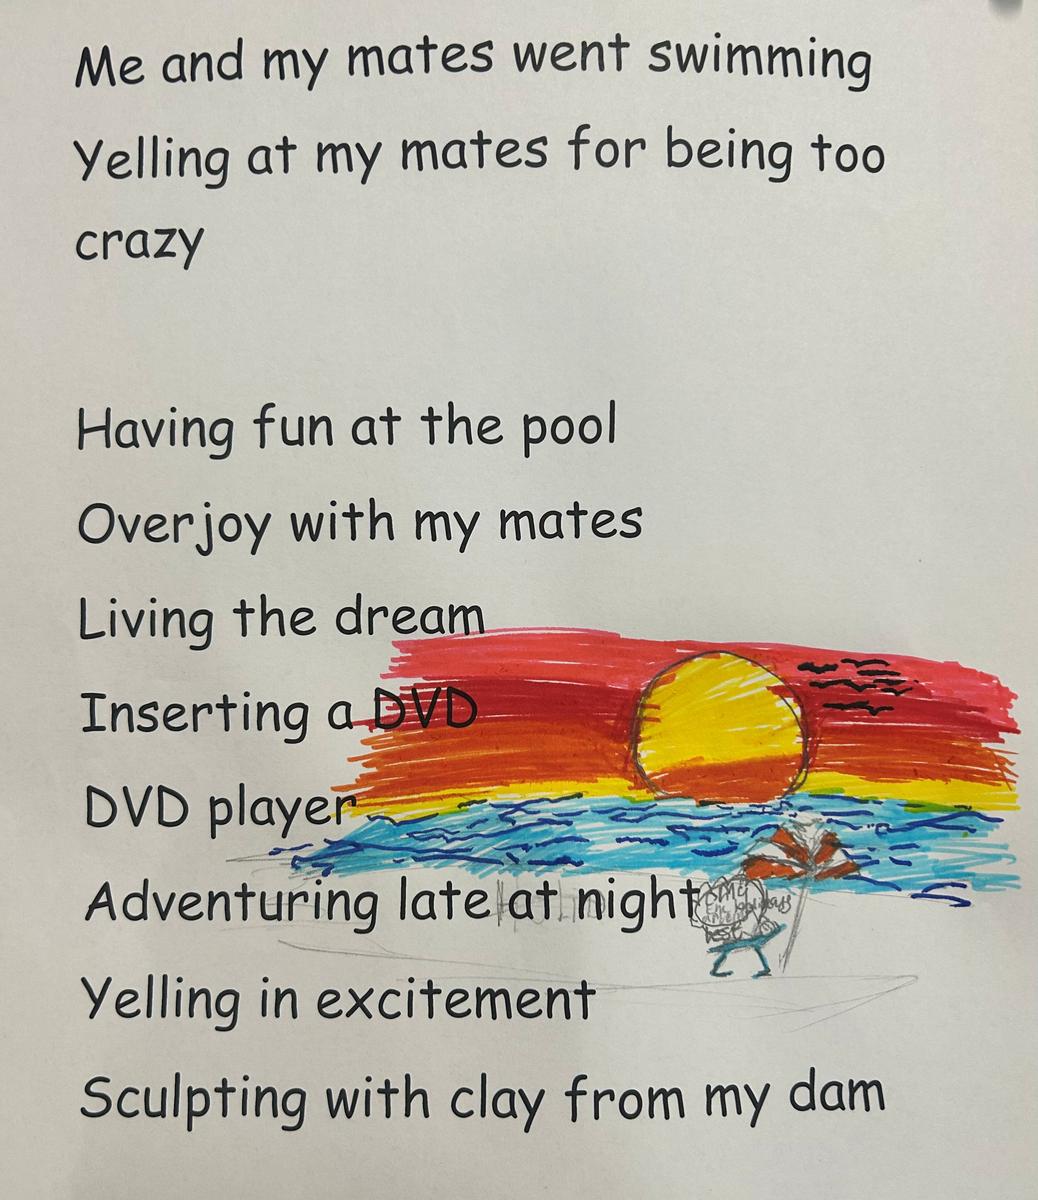 Me and my mates went swimming
Yelling at my mates for being too
crazy
Having fun at the pool
Overjoy with my mates
Living the dream
Inserting a DVD
DVD player
Adventuring late at night
Yelling in excitement
Sculpting with clay from my dam